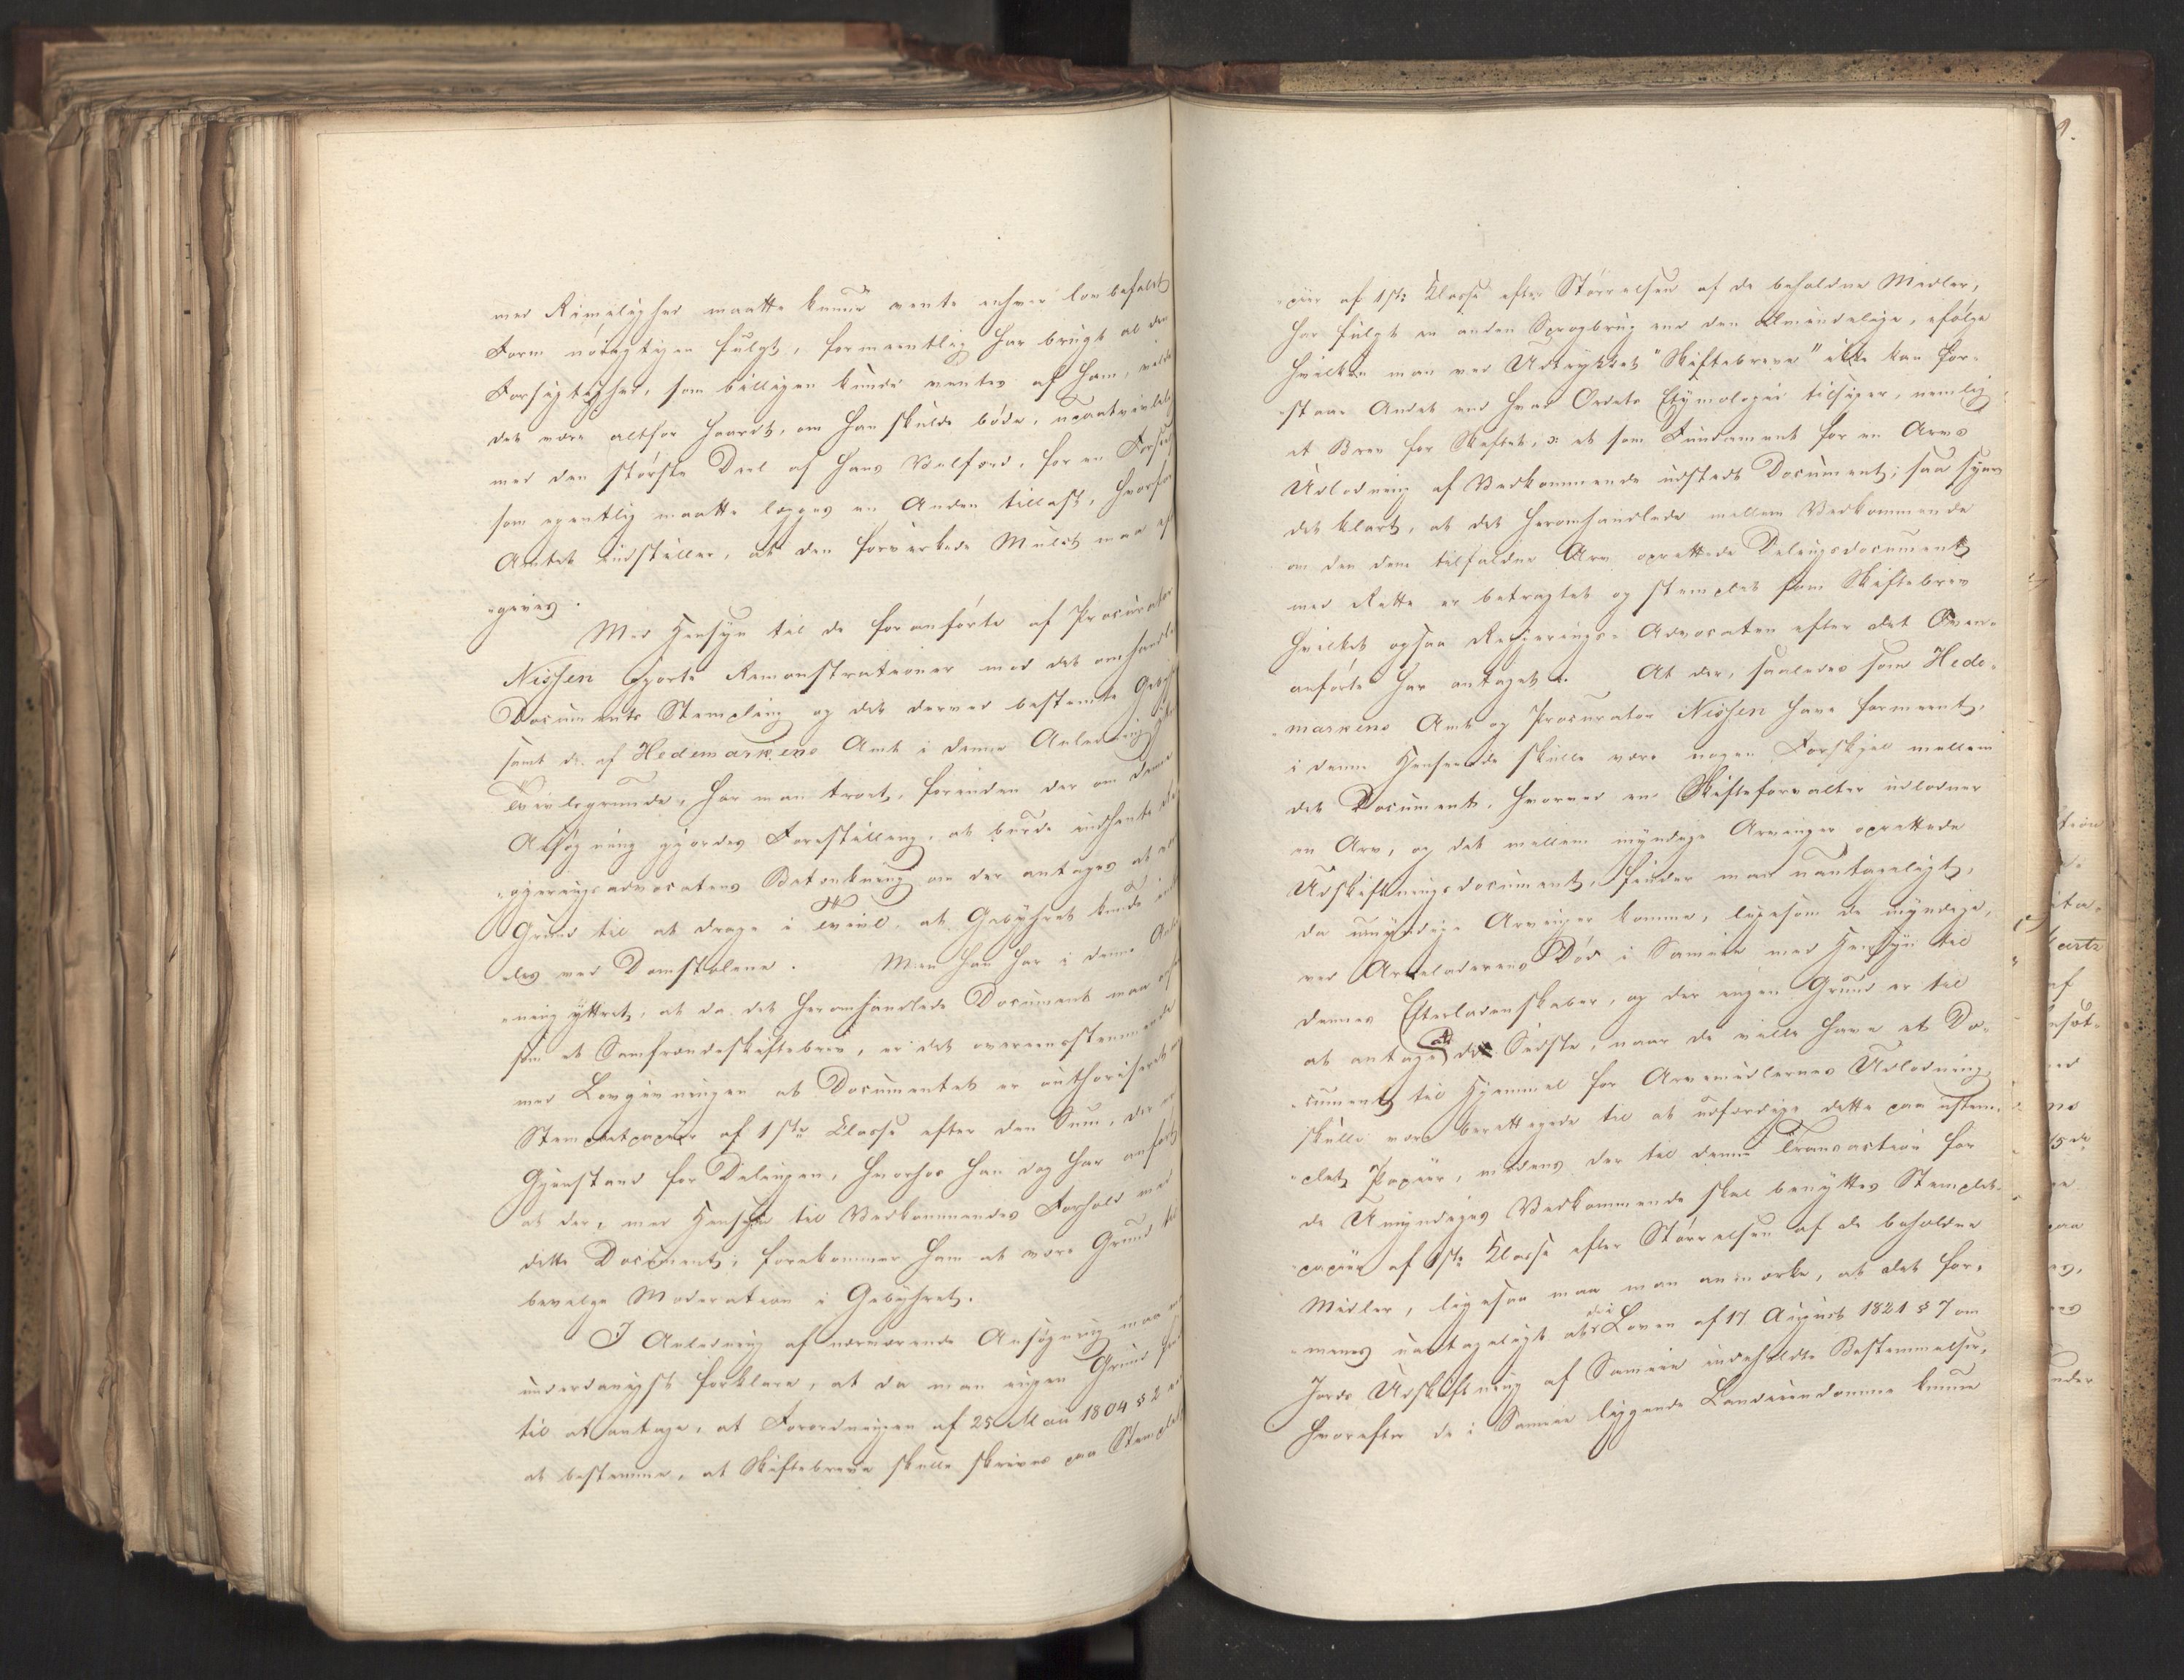 med Rimelighed maatte kunne vente enhver lovbefalet
Form nöiagtigen fulgt, formeentlig har brugt al den
Forsigtighed, som billigen kunde ventes af ham, vilde
det være altfor haardt, om han skulde böde, upaatvivlelig
med den störste Deel af hans Velfærd, for en Forseelse
som egentlig maatte lægges en Anden tillast, hvorfor
Amtet indstiller, at den forverkede Mulct maa ef-
„gives.
Med Hensyn til de foranförte af Procurator
Nissen gjorte Remonstrationer mod det omhandlede
Documents Stempling og det derved bestemte Gebyhr
samt de af Hedemarkens Amt i denne Anledning yttrede
Tvivlsgrunde, har man troet, forinden der om denne
Ansøgning gjordes Forestilling, at burde indhente Re-
„gjeringsadvocatens Betænkning om der antages at være
Grund til at drage i Tvivl, at Gebyhret kunde ind-
„les ved Domstolene. Men han har i denne Anled-
„ning yttret, at da det heromhandlede Document maa ansees
som et Samfrændeskiftebrev, er det overeensstemmende
med Lovgivningen at Documentet er authoriseret
Stempletpapiir af 1ste Classe efter den Sum, der er
Gjenstand for Delingen, hvorhos han dog har anfört
at der, med Hensyn til Vedkommendes Forhold med
dette Document, forekommer ham at være Grund til
bevilge Moderation i Gebyhret.
I Anledning af nærværende Ansøgning maa man
underdanigst forklare, at da man ingen Grund har
til at antage, at Forordningen af 25 Mai 1804 § 2 ved
at bestemme, at Skiftebreve skulle skrives paa Stemplet
„piir af 1ste Classe efter Störrelsen af de beholdne Midler,
har fulgt en anden Sprogbrug end den almindelige, ifölge
hvilken man ved Udtrykket "Skiftebreve" ikke kan for-
„staae Andet end hvad Ordets Etymologie tilsiger, nemlig
et Brev for Skiftet, ɔ: et som Fundament for en Arvs
Udlodning af Vedkommende udstedt Document; saa synes
det klart, at det heromhandlede mellem Vedkommende
om den dem tilfaldne Arv oprettede Delingsdocument
med Rette er betragtet og stemplet som Skiftebrev
hvilket ogsaa Regjerings-Advocaten efter det Oven-
anförte har antaget. At der, saaledes som Hede-
„markens Amt og Procurator Nissen have formeent,
i denne Henseende skulle være nogen Forskjel mellem
det Document, hvorved en Skifteforvalter udlodner
en Arv, og det mellem myndige Arvinger oprettede
Udskiftningsdocument, finder man uantageligt,
da umyndige Arvinger komme, ligesom de myndige,
ved Arveladerens Död i Sameie med Hensyn til
dennes Efterladenskaber, og der ingen Grund er til
at antage at de Sidste, naar de ville have et Do-
„cument til Hjemmel for Arvemidlernes Udlodning
skulle være berettigede til at udfærdige dette paa ustem-
„plet Papiir, medens der til denne Transaction for
de Umyndiges Vedkommende skal benyttes Stemplet-
papiir af 1ste Classe efter Störrelsen af de beholdne
Midler, ligesaa maa man anmærke, at det for-
„menes uantageligt at de i Loven af 17 August 1821 § 7 om
Jords Udskiftning af Sameie indeholdte Bestemmelser,
hvorefter de i Sameie liggende Landeiendomme kunne